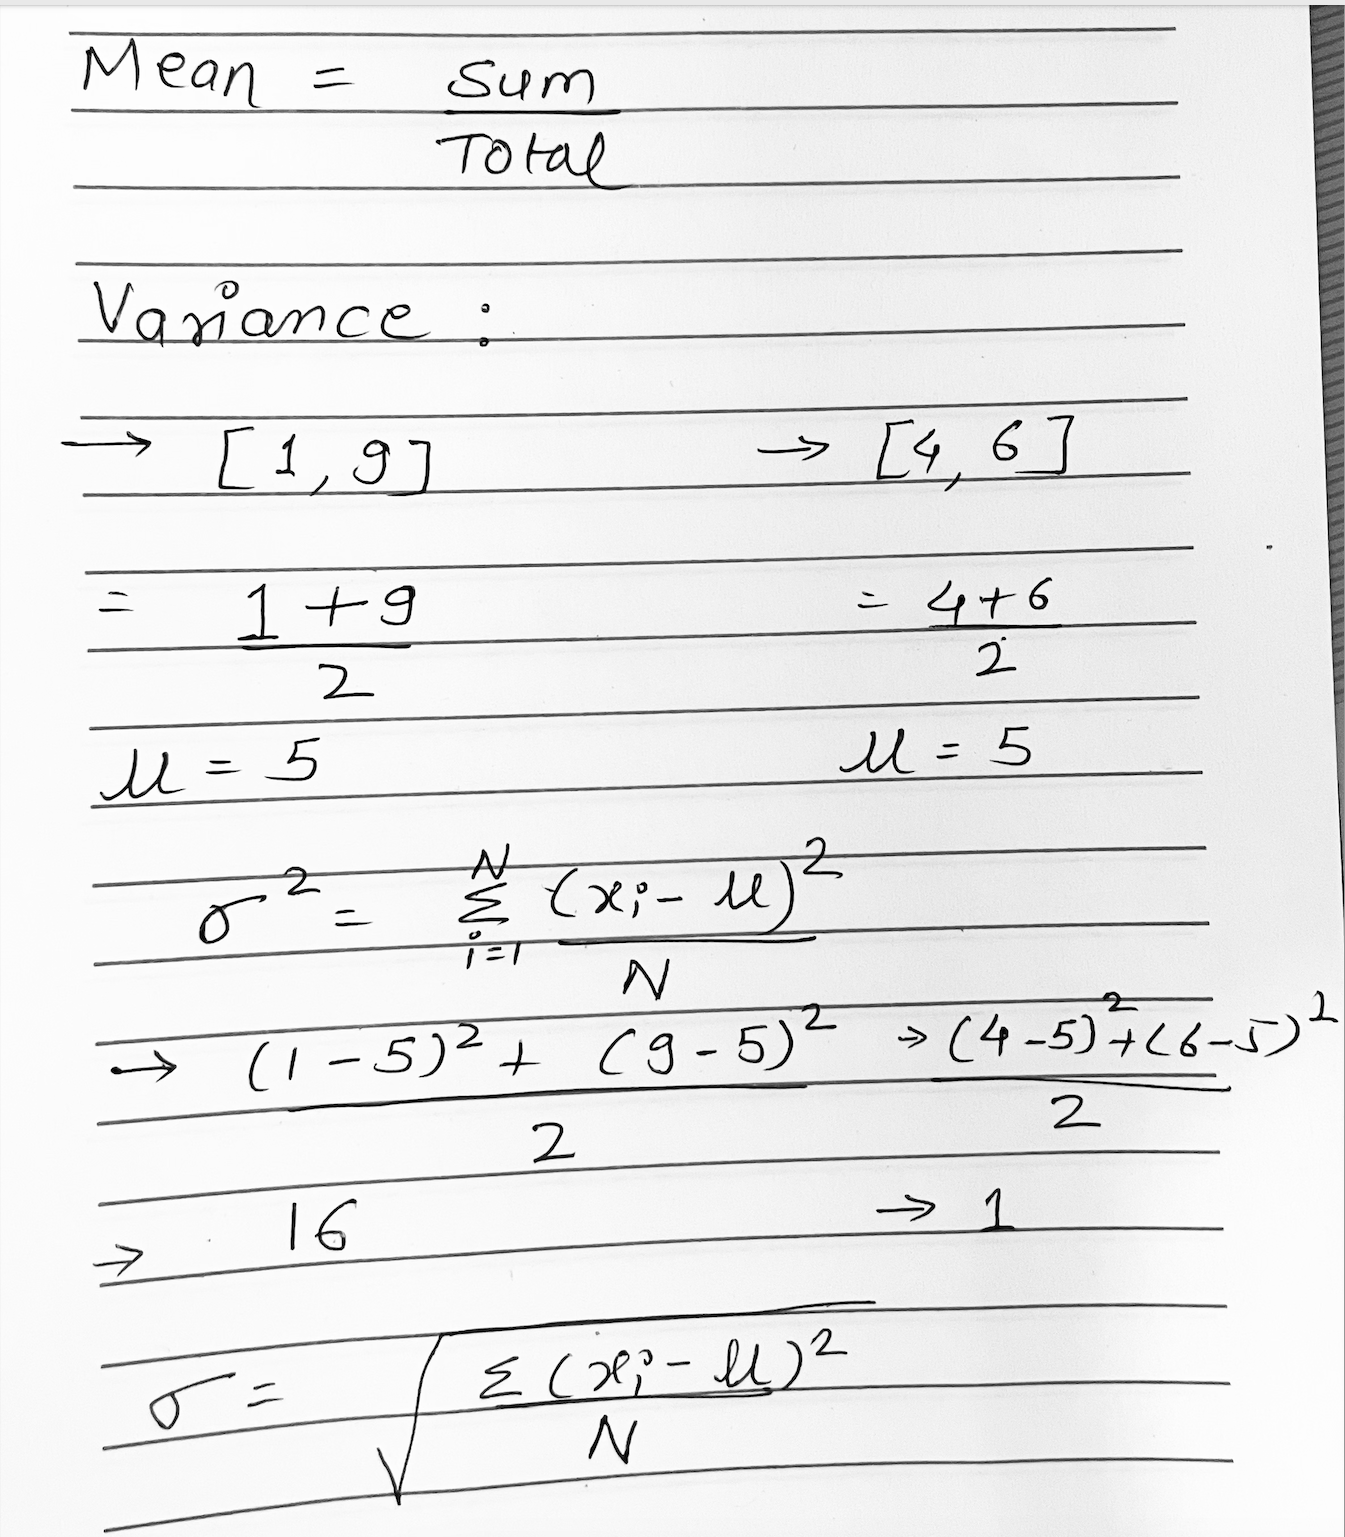 Mean = Sum / Total
Variance :
→ [1, 9] → [4, 6]
= (1 + 9) / 2 = (4+6) / 2
μ = 5 μ = 5
σ² = Σ_{i=1}^{N} (xᵢ - μ)² / N
→ ((1 - 5)² + (9 - 5)²) / 2 → ((4-5)² + (6-5)²) / 2
→ 16 → 1
σ = √(Σ (xᵢ - μ)² / N)